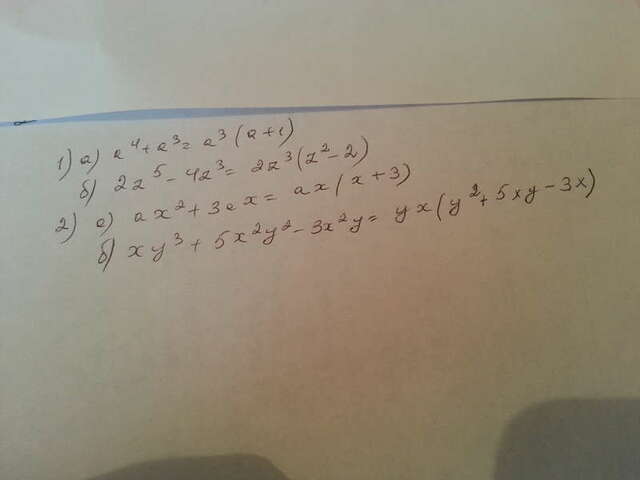 1) а) a⁴+a³= a³(a+1)
б) 2z⁵-4z³= 2z³(z²-2)
2) а) ax²+3ax= ax(x+3)
б) xy³+5x²y²-3x²y= yx(y²+5xy-3x)